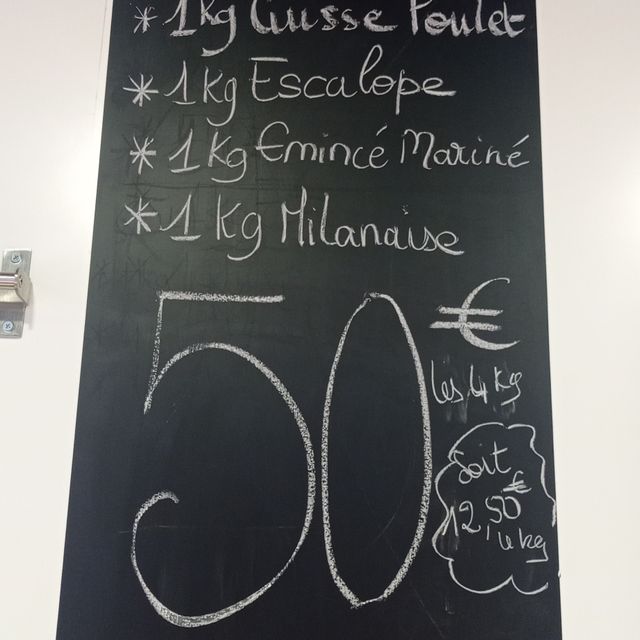 * 1kg Cuisse Poulet
* 1kg Escalope
* 1kg Emincé Mariné
* 1 Kg Milanaise
50 €
les 4 kg
Soit
12,50 €
le kg